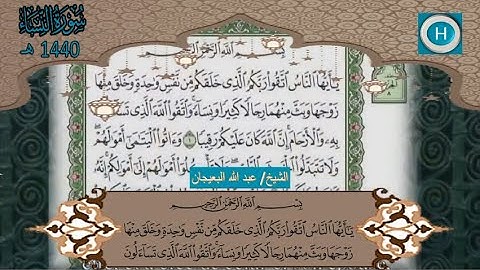 سُورَةُ النِّسَاءِ
1440 هـ
H
بِسْمِ اللَّهِ الرَّحْمَٰنِ الرَّحِيمِ
يَٰٓأَيُّهَا النَّاسُ اتَّقُوا رَبَّكُمُ الَّذِي خَلَقَكُم مِّن نَّفْسٍ وَٰحِدَةٍ وَخَلَقَ مِنْهَا
زَوْجَهَا وَبَثَّ مِنْهُمَا رِجَالًا كَثِيرًا وَنِسَآءً وَاتَّقُوا اللَّهَ الَّذِي تَسَآءَلُونَ
بِهِ وَالْأَرْحَامَ إِنَّ اللَّهَ كَانَ عَلَيْكُمْ رَقِيبًا ١ وَءَاتُوا الْيَتَٰمَىٰٓ أَمْوَٰلَهُمْ
وَلَا تَتَبَدَّلُوا الْخَبِيثَ بِالطَّيِّبِ وَلَا تَأْكُلُوٓا أَمْوَٰلَهُمْ إِلَىٰٓ أَمْوَٰلِكُمْ إِنَّهُ
الشيخ/ عبد الله البعيجان
بِسْمِ اللَّهِ الرَّحْمَٰنِ الرَّحِيمِ
يَٰٓأَيُّهَا النَّاسُ اتَّقُوا رَبَّكُمُ الَّذِي خَلَقَكُم مِّن نَّفْسٍ وَٰحِدَةٍ وَخَلَقَ مِنْهَا
زَوْجَهَا وَبَثَّ مِنْهُمَا رِجَالًا كَثِيرًا وَنِسَآءً وَاتَّقُوا اللَّهَ الَّذِي تَسَآءَلُونَ